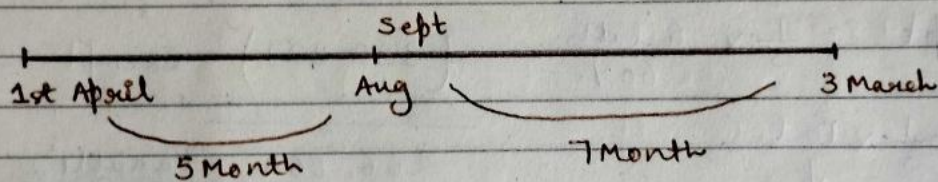 Sept
1st April Aug 3 March
5 Month 7 Month